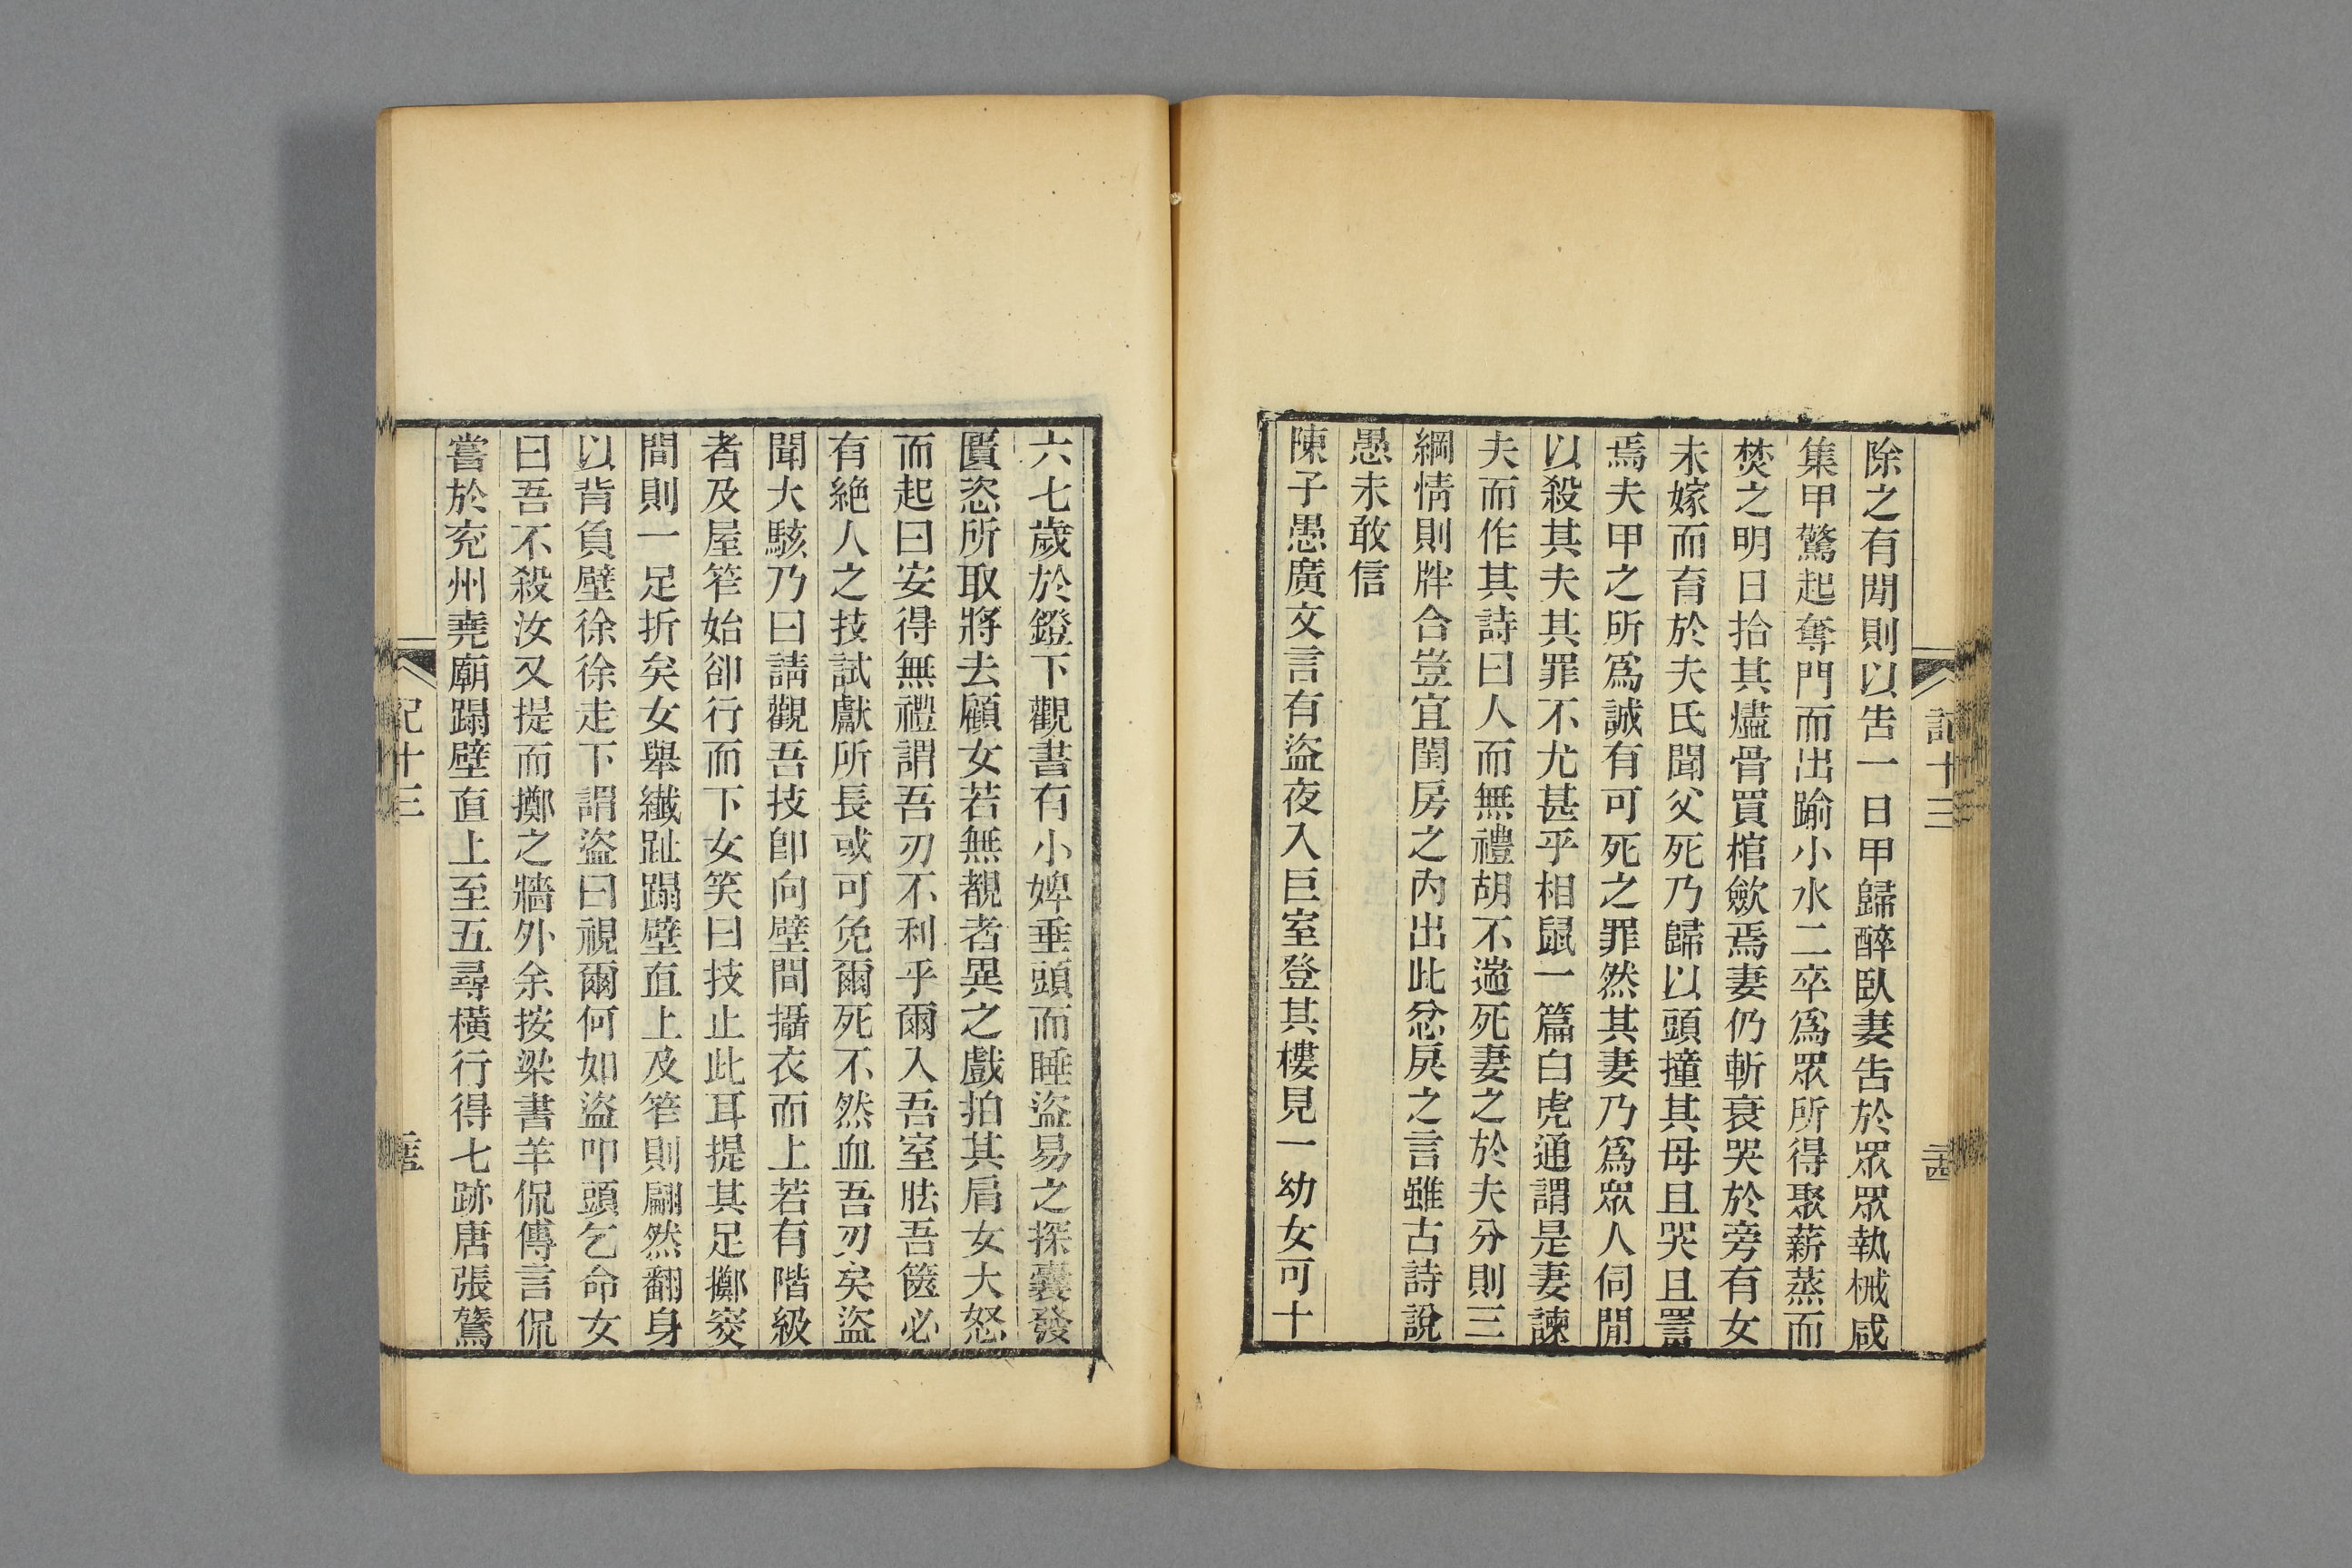 記十三
除之有閒則以告一日甲歸醉臥妻告於眾眾執械咸
集甲驚起奪門而出踰小水二卒爲眾所得聚薪蒸而
焚之明日拾其燼骨買棺斂焉妻仍斬衰哭於旁有女
未嫁而育於夫氏聞父死乃歸以頭撞其母且哭且詈
焉夫甲之所爲誠有可死之罪然其妻乃爲眾人伺閒
以殺其夫其罪不尤甚乎相鼠一篇白虎通謂是妻諫
夫而作其詩曰人而無禮胡不遄死妻之於夫分則三
綱情則牉合豈宜閨房之內出此忿戾之言雖古詩說
愚未敢信
陳子愚廣文言有盜夜入巨室登其樓見一幼女可十
六七歲於鐙下觀書有小婢垂頭而睡盜易之探囊發
匱恣所取將去顧女若無覩者異之戲拍其肩女大怒
而起曰安得無禮謂吾刃不利乎爾入吾室胠吾篋必
有絕人之技試獻所長或可免爾死不然血吾刃矣盜
聞大駭乃曰請觀吾技卽向壁間攝衣而上若有階級
者及屋笮始卻行而下女笑曰技止此耳提其足擲窔
間則一足折矣女舉纖趾蹋壁直上及笮則翩然翻身
以背負壁徐徐走下謂盜曰視爾何如盜叩頭乞命女
曰吾不殺汝又提而擲之牆外余按梁書羊侃傳言侃
嘗於兖州堯廟蹋壁直上至五尋橫行得七跡唐張鷟
記十三